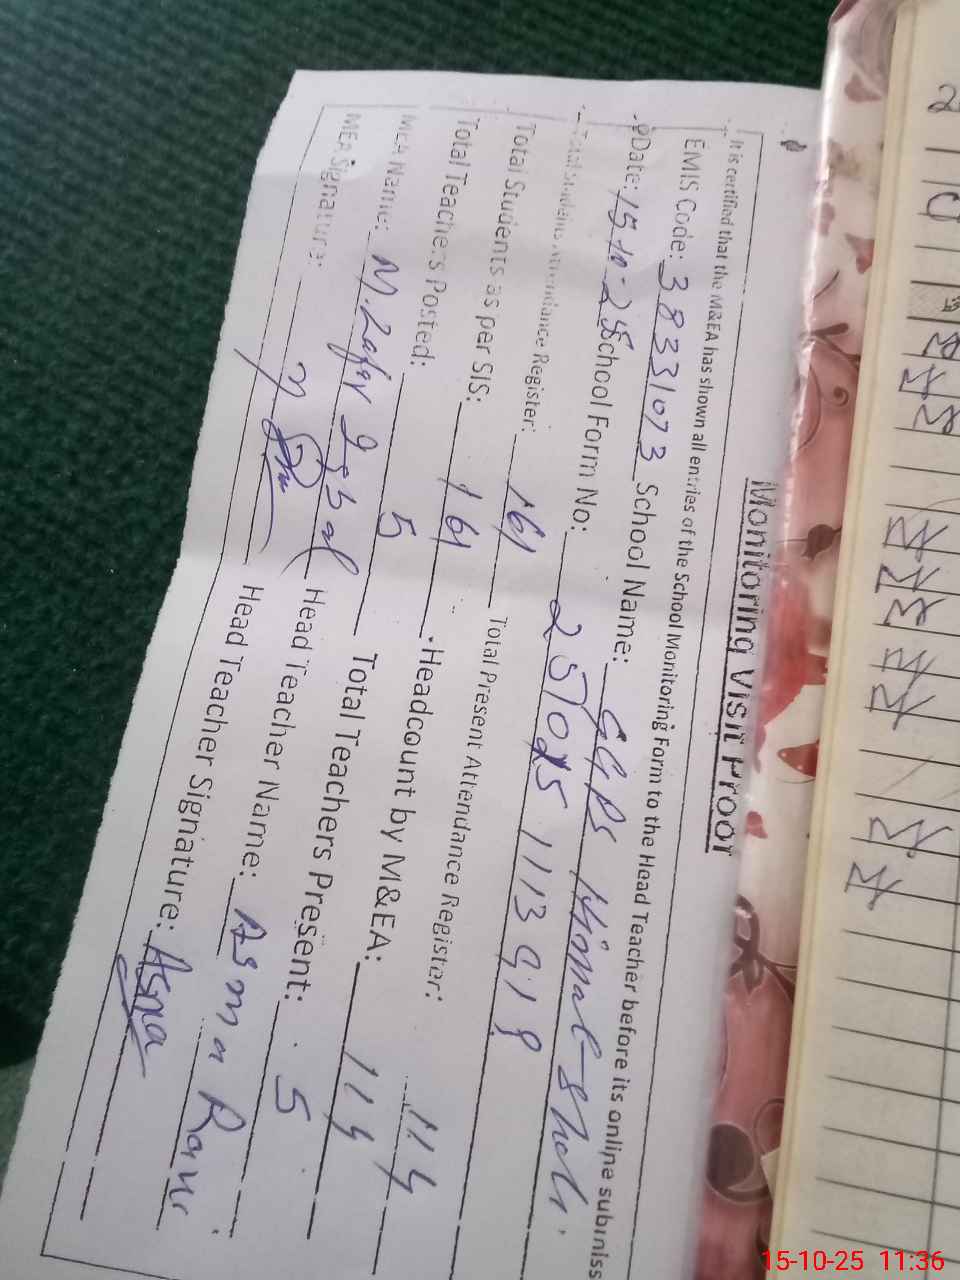 Monitoring Visit Proof
It is certified that the M&EA has shown all entries of the School Monitoring Form to the Head Teacher before its online submiss
EMIS Code: 38331073 School Name: GGPS Himat-
Date: 15-10-25 School Form No: 
Total Students Attendance Register: 161 Total Present Attendance Register: 114
Total Students as per SIS: 161 Headcount by M&EA: 114
Total Teachers Posted: 5 Total Teachers Present: 5
MEA Name: M. Zafar Iqbal Head Teacher Name: Asma Rani
MEA Signature: Head Teacher Signature: Asma
15-10-25 11:36